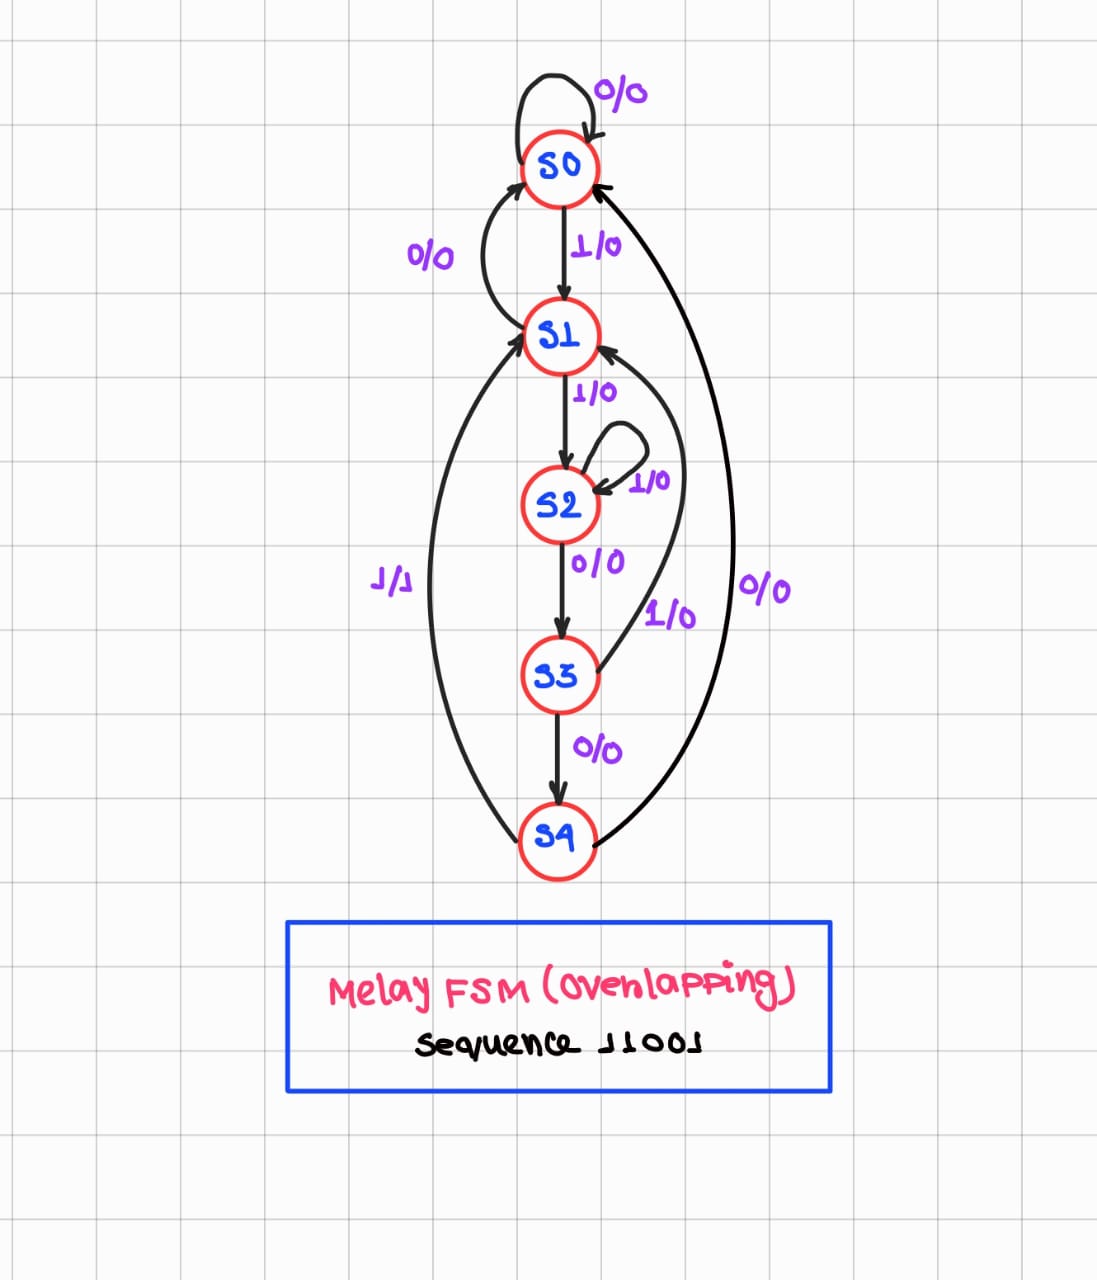 0/0
S0
0/0
1/0
S1
1/0
S2
1/0
0/0
1/1
0/0
1/0
S3
0/0
S4
Melay FSM (overlapping)
sequence 11001